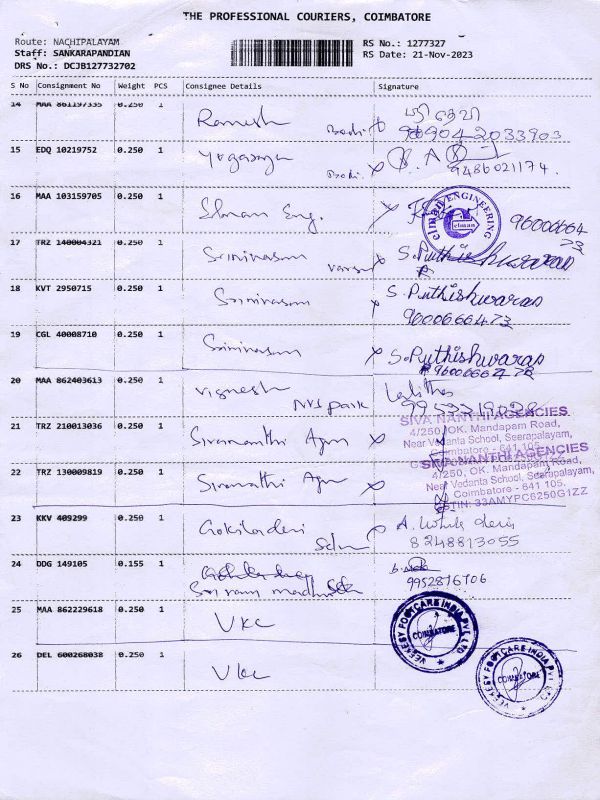 THE PROFESSIONAL COURIERS, COIMBATORE
Route: NACHIPALAYAM
Staff: SANKARAPANDIAN
DRS No.: DCJB127732702
RS No.: 1277327
RS Date: 21-Nov-2023
S No Consignment No Weight PCS Consignee Details Signature
14 MAA 861197335 0.250 1 Ramesh
2033903
15 EDQ 10219752 0.250 1 Yogaraya
9486021174.
16 MAA 103159705 0.250 1 Elman Eng.
elman ENGINEERING
elman
17 TRZ 140004321 0.250 1 Srinivasan S. Puthishwaran
18 KVT 2950715 0.250 1 Srinivasan S. Puthishwaran
9600666473
19 CGL 40008710 0.250 1 Srinivasan S. Puthishwaran
9600666473
20 MAA 862403613 0.250 1 Vignesh NVS park Lalitha
21 TRZ 210013036 0.250 1 Sivananthi Agen
SIVA NANTHI AGENCIES
4/250, OK. Mandapam Road,
Near Vedanta School, Seerapalayam,
Coimbatore - 641 105.
22 TRZ 130009819 0.250 1 Sivanathi Agen
SIVA NANTHI AGENCIES
4/250, OK. Mandapam Road,
Near Vedanta School, Seerapalayam,
Coimbatore - 641 105.
GSTIN: 33AMYPC6250G1ZZ
23 KKV 409299 0.250 1 Gokiladevi A.
8248813055
24 DDG 149105 0.155 1 Sri ram
9952816706
25 MAA 862229618 0.250 1 VKC
VEEKESY FOOTCARE INDIA PVT LTD
COIMBATORE
26 DEL 600268038 0.250 1 VKC
VEEKESY FOOTCARE INDIA PVT LTD
COIMBATORE